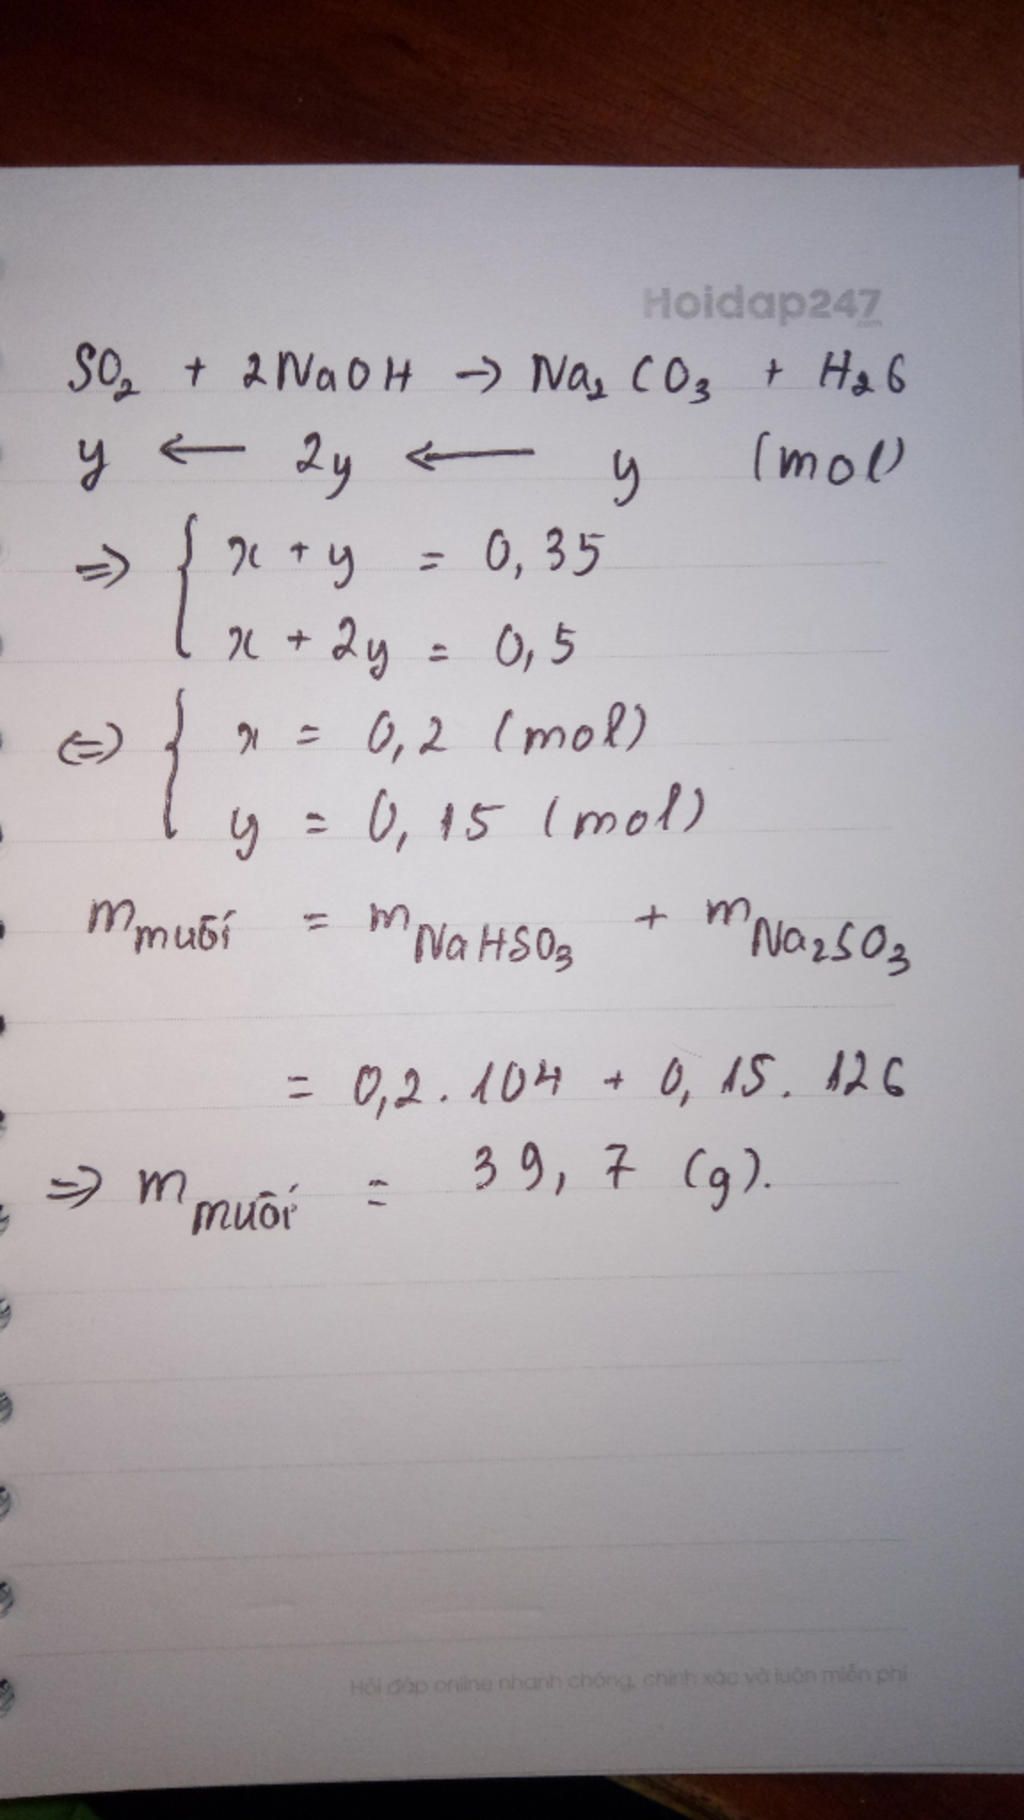 Hoidap247
.com
SO₂ + 2NaOH → Na₂CO₃ + H₂O
y ← 2y ← y (mol)
⇒ { x + y = 0,35
x + 2y = 0,5
⇔ { x = 0,2 (mol)
y = 0,15 (mol)
m muối = m NaHSO₃ + m Na₂SO₃
= 0,2 . 104 + 0,15 . 126
⇒ m muối = 39,7 (g).
Hỏi đáp online nhanh chóng, chính xác và luôn miễn phí